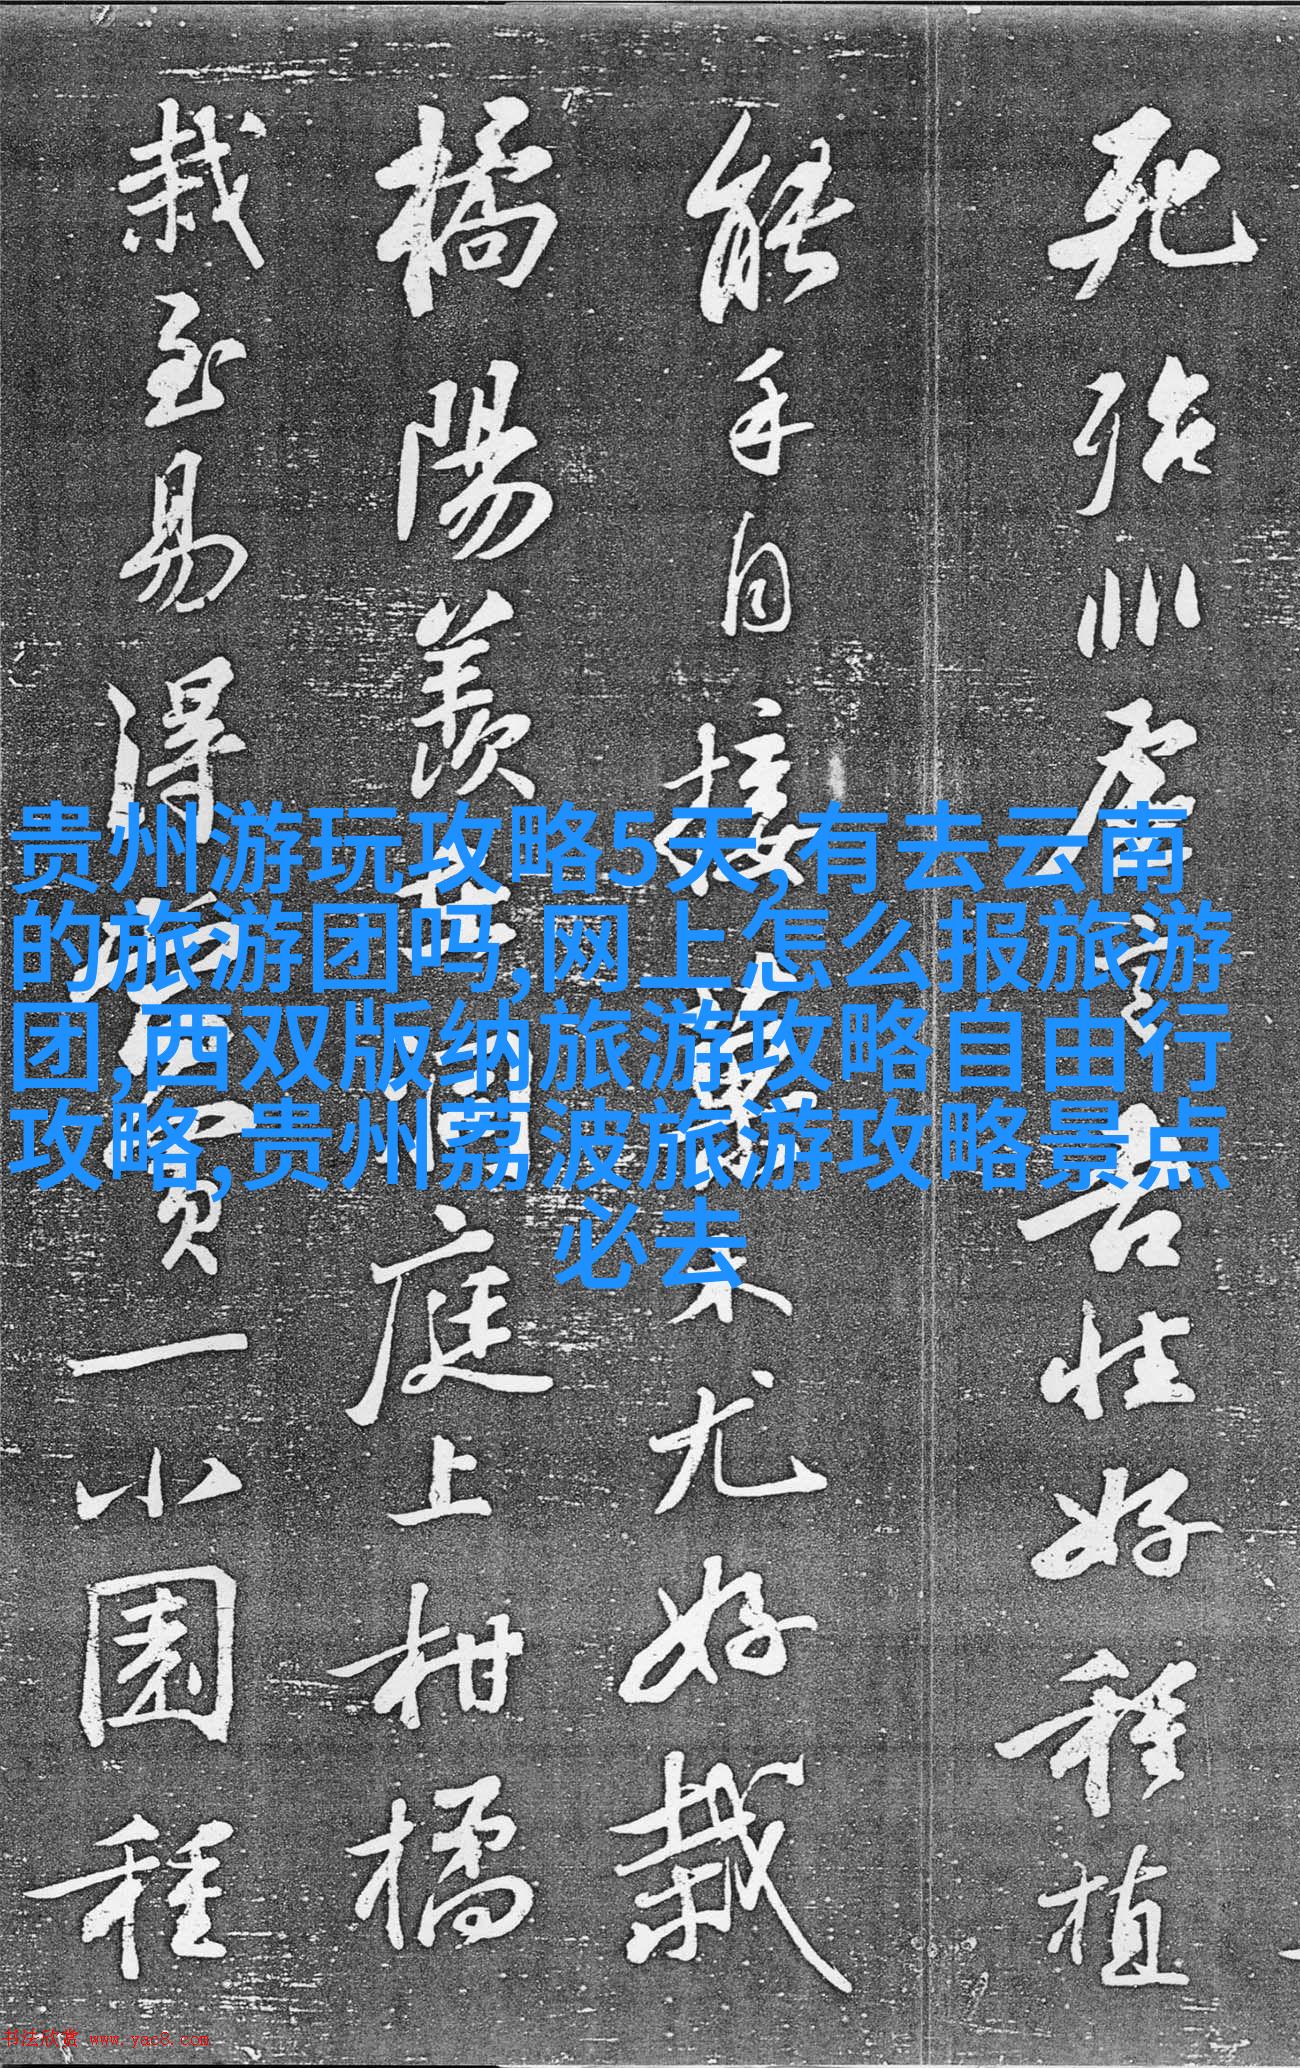 死殆非虚言吾性好種植
能手自接菓木尤好栽
橘陽羨在洞庭上柑橘
栽至易得當買一小園種
贵州游玩攻略5天,有去云南
的旅游团吗,网上怎么报旅游
团,西双版纳旅游攻略自由行
攻略,贵州荔波旅游攻略景点
必去
书法欣赏 www.yac8.com